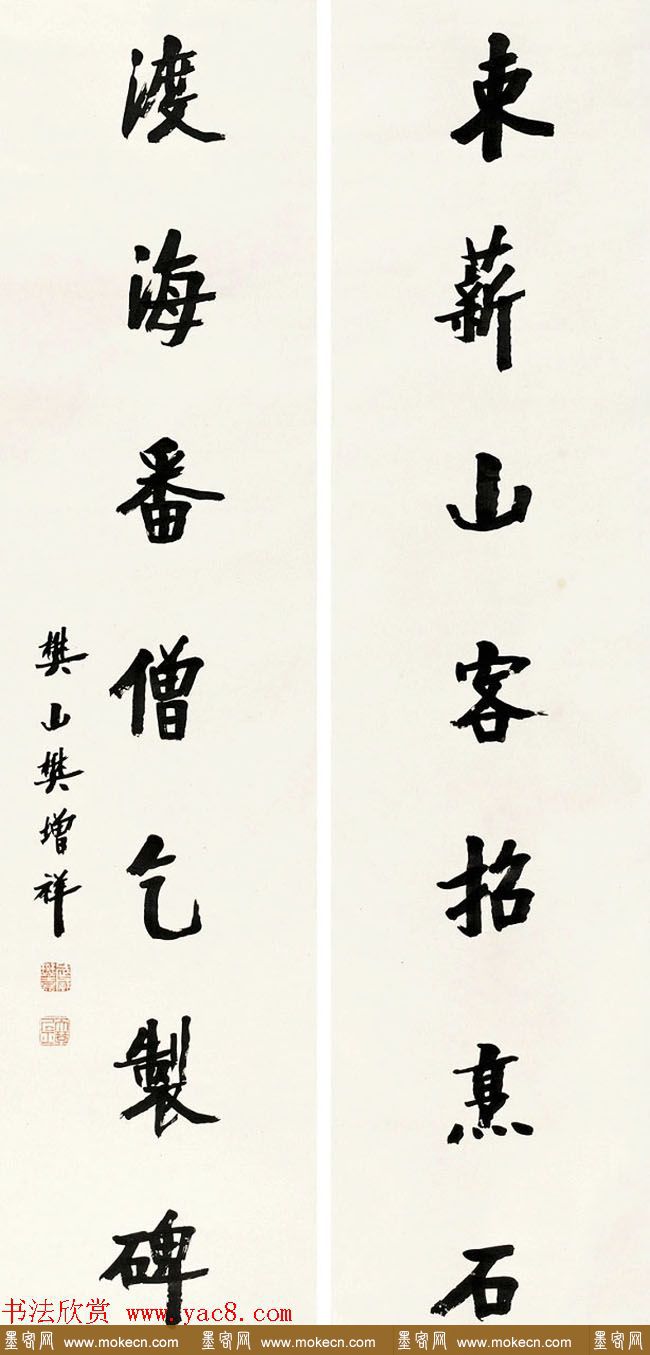 束薪山客招烹石
渡海番僧乞製碑
樊山樊增祥
书法欣赏 www.yac8.com
墨客网 www.mokecn.com 墨客网 www.mokecn.com 墨客网 www.mokecn.com 墨客网